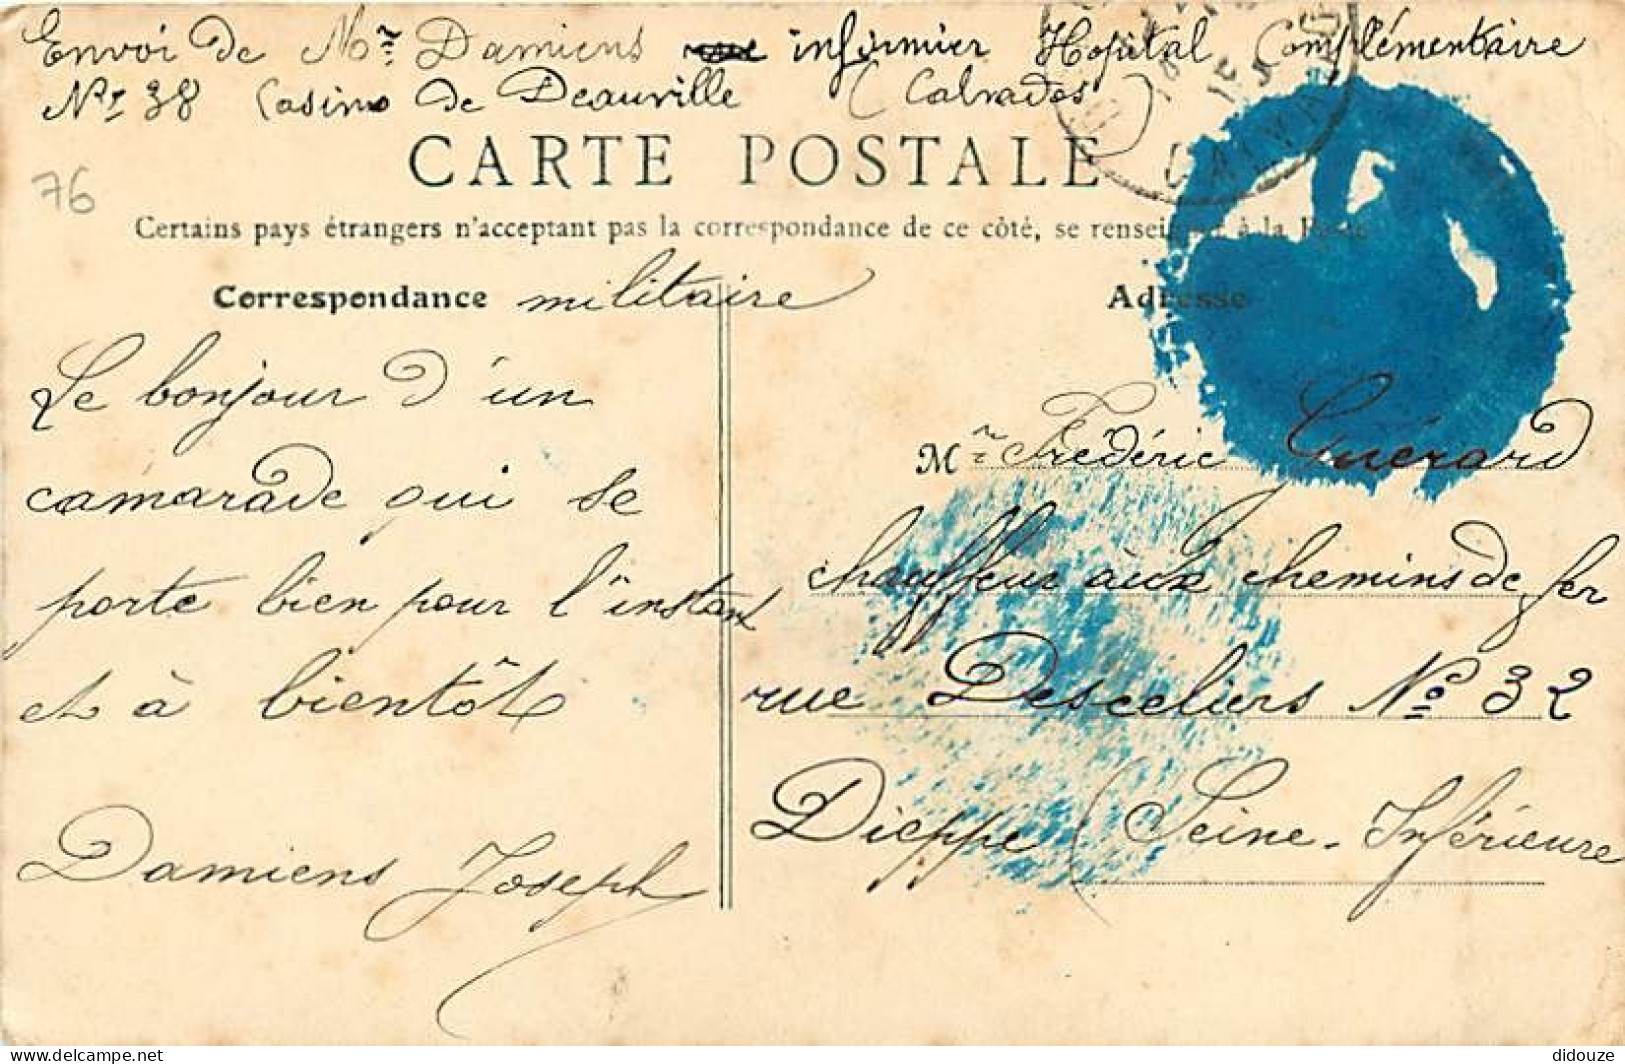 Envoi de Mr Damiens infirmier Hopital Complémentaire
Nº 38 Casino de Deauville (Calvados)
CARTE POSTALE
76
Certains pays étrangers n'acceptant pas la correspondance de ce côté, se renseigner à la Poste
Correspondance militaire
Adresse
Le bonjour d'un
camarade qui se
porte bien pour l'instant
et à bientôt
Damiens Joseph
Mr Frédéric Guérard
chauffeur aux chemins de fer
rue Desceliers Nº 32
Dieppe (Seine-Inférieure
CALVADOS
Delcampe.net
didouze